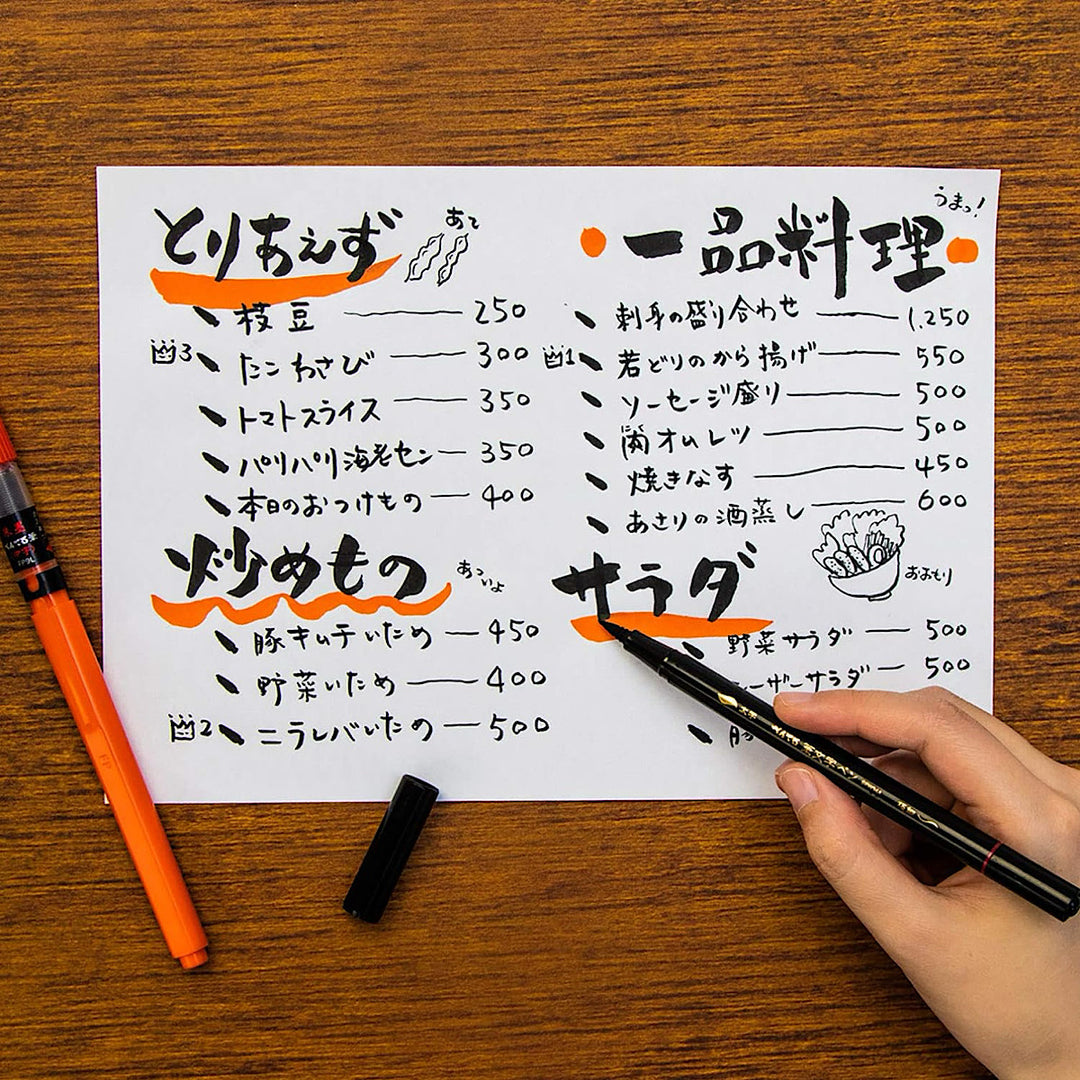 とりあえず
あて
枝豆 250
3 たこわさび 300
トマトスライス 350
パリパリ海老セン 350
本日のおつけもの 400
炒めもの
あついよ
豚キムチいため 450
野菜いため 400
2 ニラレバいため 500
一品料理
うまっ!
刺身の盛り合わせ 1.250
1 若どりのから揚げ 550
ソーセージ盛り 500
肉オムレツ 500
にく
焼きなす 450
あさりの酒蒸し 600
サラダ
おおもり
野菜サラダ 500
ーザーサラダ 500
豚